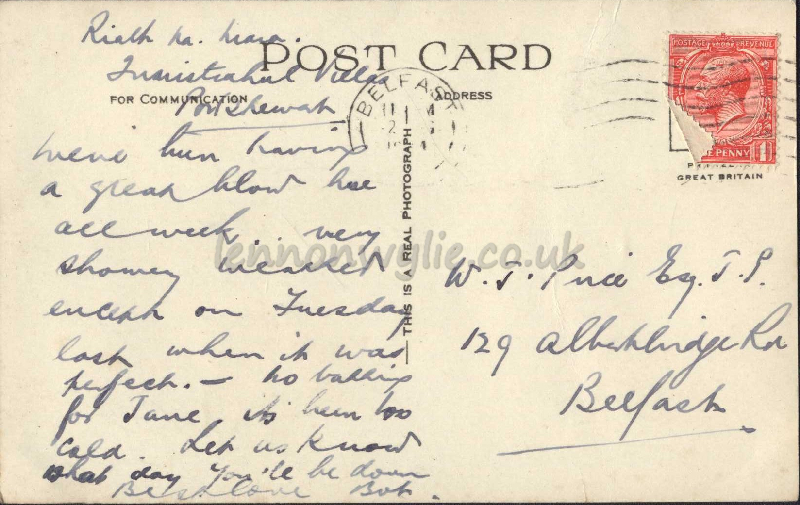 Riath na. Mara.
Inishtrahul Villas
Portstewart
POST CARD
FOR COMMUNICATION
ADDRESS
Weve been having
a great blow here
all week very
showery weather
except on Tuesday
last when it was
perfect. — No bathing
for Jane its been too
cold. Let us know
what day you'll be down
Best Love Bob.
THIS IS A REAL PHOTOGRAPH
BELFAST
POSTAGE REVENUE
PENNY 1
GREAT BRITAIN
W. J. Price Esq. J. P.
129 Albertbridge Rd
Belfast
lennonwylie.co.uk